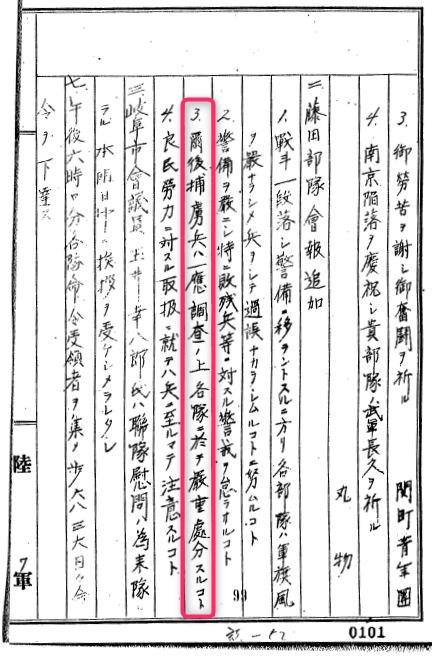 3. 御勞苦ヲ謝シ御奮闘ヲ祈ル 関町青年團
4. 南京陥落ヲ慶祝シ貴部隊ノ武軍長久ヲ祈ル
丸物
二、藤田部隊會報追加
1. 戦斗一段落シ警備ニ移ラントスルニ方リ各部隊ハ軍旗風
ヲ嚴ナラシメ兵ヲシテ過誤ナカラシムルコトニ努ムルコト
2. 警備ヲ嚴ニシ特ニ敗残兵等ニ対スル警戒ヲ怠ラサルコト
3. 爾後捕虜兵ハ一應調査ノ上各隊ニ於テ嚴重處分スルコト
4. 良民勞力ニ対スル取扱ニ就テハ兵ニ至ルマテ注意スルコト
三、岐阜市會議員 幸八郎氏ハ聯隊慰問ノ為来隊
ラル 挨拶ヲ受ケシメラレタシ
七、午後六時 分各隊命令受領者ヲ集メ歩六八三大日々命
令ヲ下達ス
陸軍
99
0101